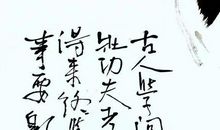 古人学问
壮功夫老
得来终觉
事要躬